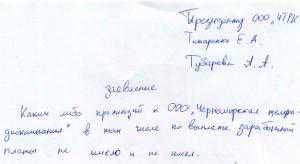 Президенту ООО "ЧТРК"
Титаренко Е. А.
Губарева А. А.
заявление
Каких либо претензий к ООО "Черноморская телера-
диокомпания" в том числе по выплате заработной
платы не имею и не имел.